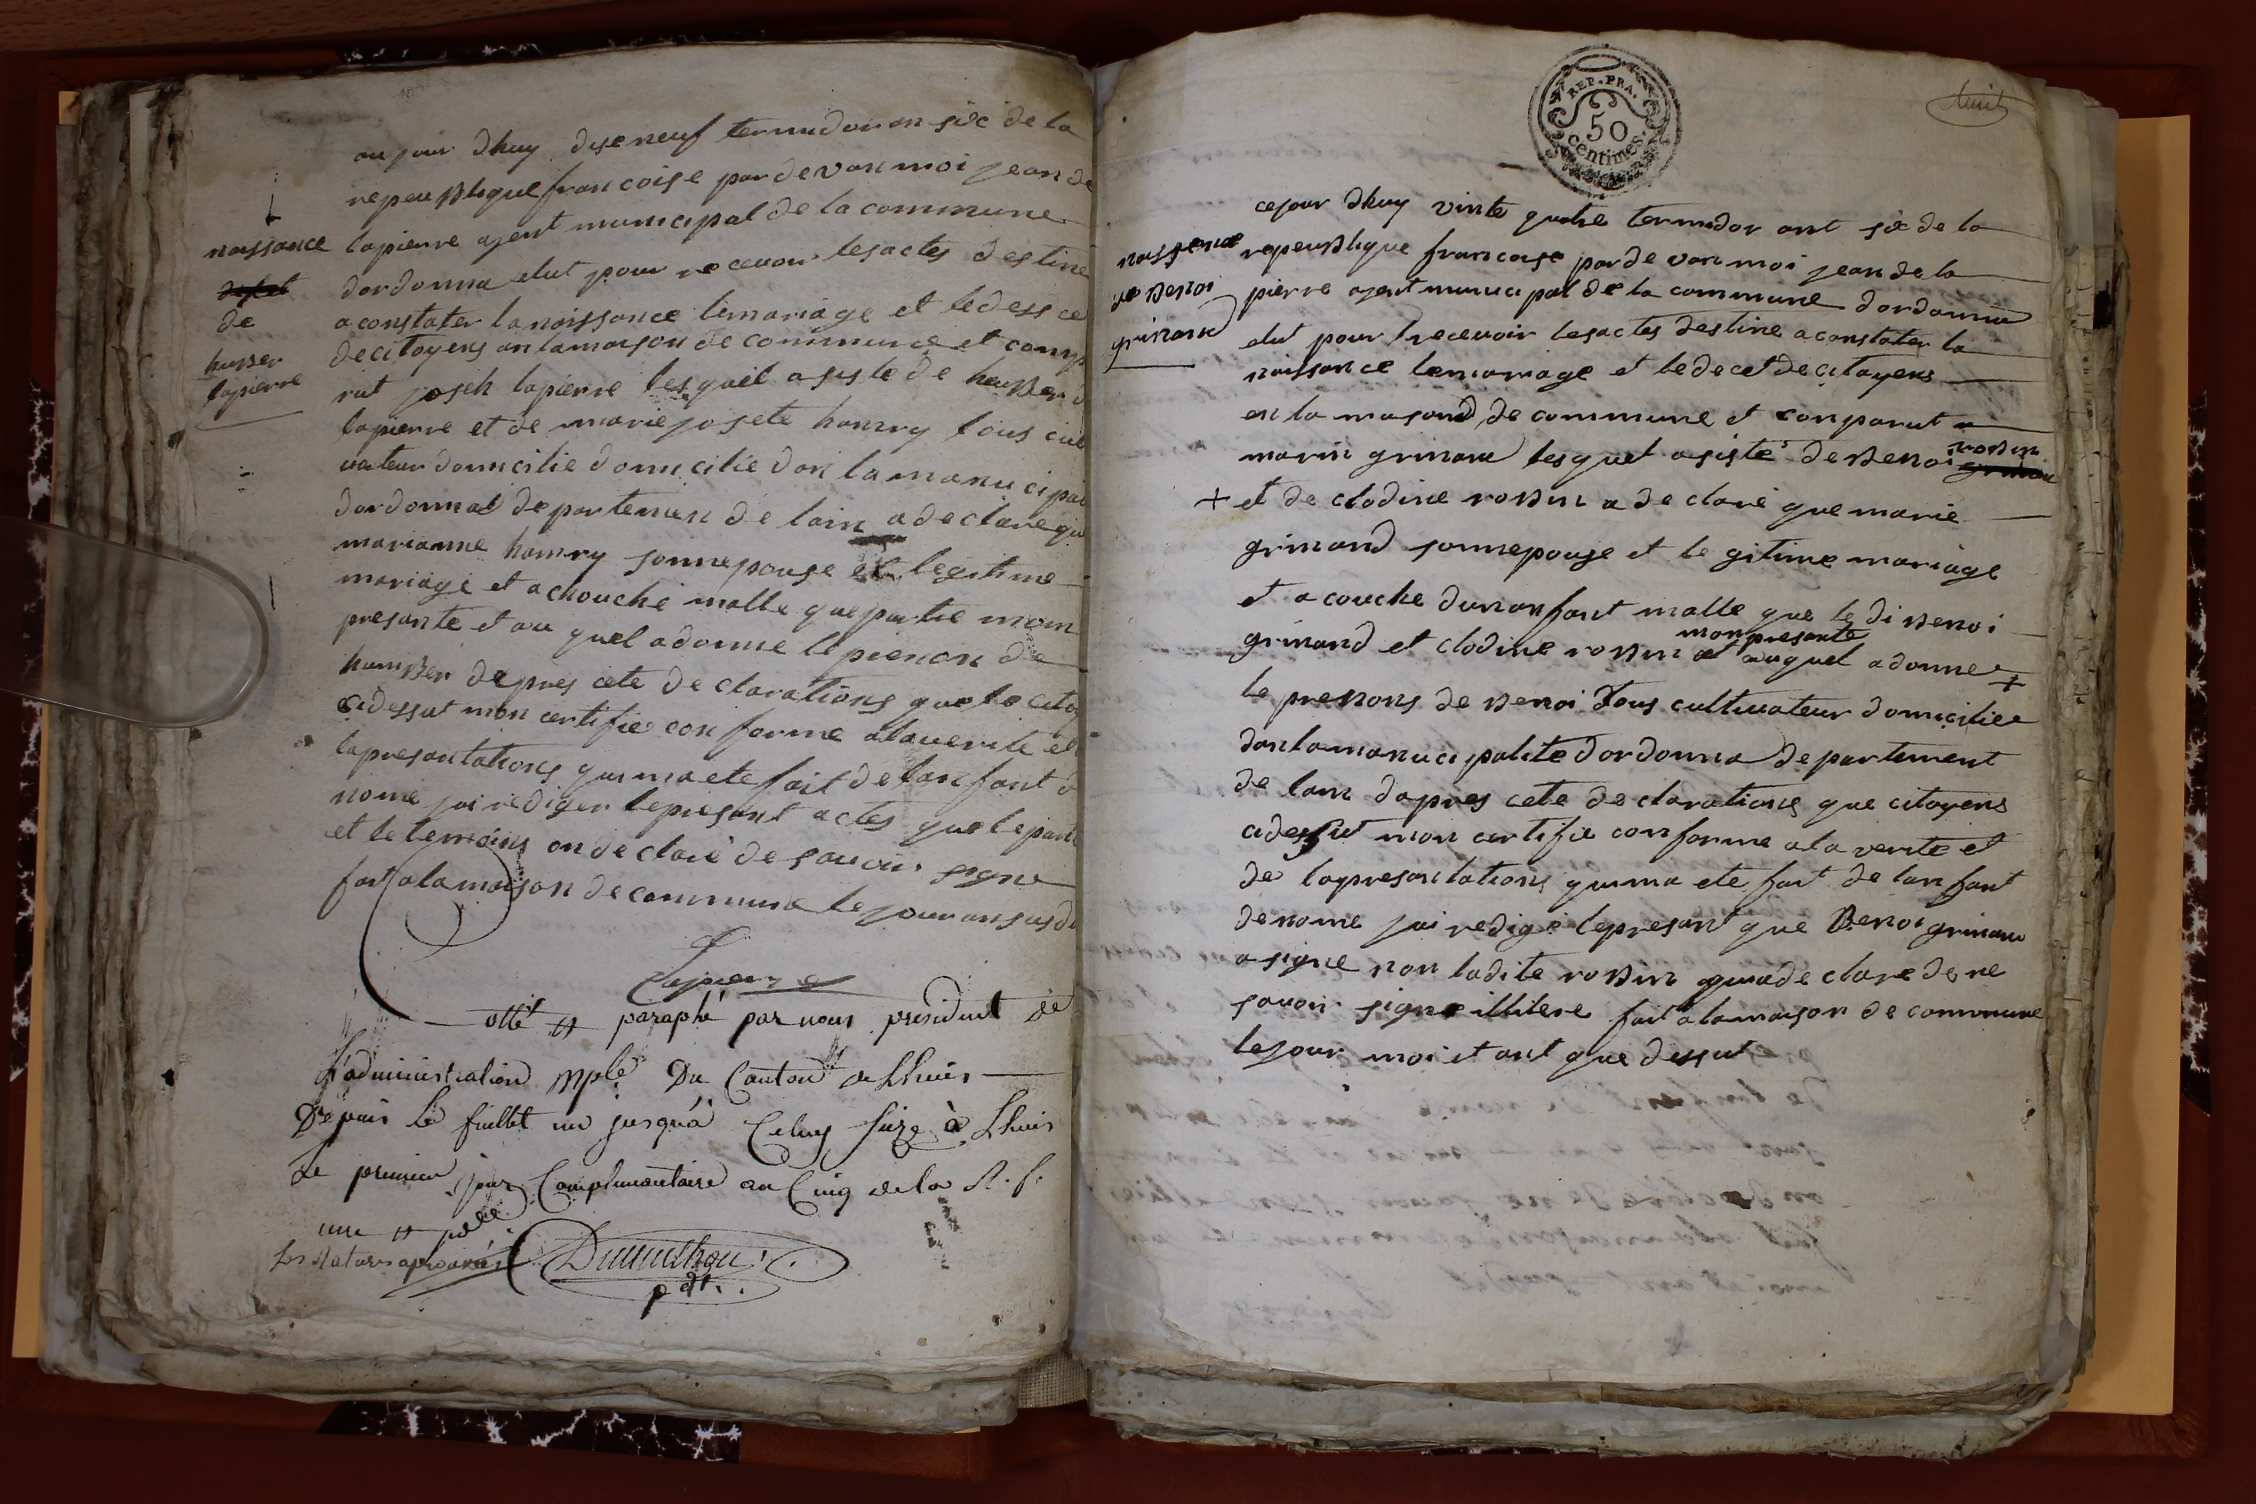 au jour dhuy dise neuf termidor an sixe de la
repeublique francoise par de van moi jean de
lapierre ajent municipal de la commune
dordonna elut pour recevoir les actes destine
a constater la naissance le mariage et le dess ce
de citoyens an la maison de commune et comp
rut joseh lapierre lesquel asiste de heuber d
lapierre et de marie josete hamry tous cul
vateur domicilie domicilie dan la manu cipa
dordonnas departemen de lain a declare qu
marianne hamry sonnepouse et legitime
mariage et a chouche malle que partie mom
presante et au quel a donne le prenon de
humber depres cete de clarations que le cito
cidessut mon certifie con forme ala verite et
la presantations qui ma ete fait de lan fant d
nome jai rediger le present actes que le parti
et le temoins on de clare de savoir signe
fait a la maison de commune le jour an susdi
naissance
de
huber
lapierre
Lapierre
Cotté et paraphé par nous président de
l'administration mple Du Canton de Lhuis
Depuis le fuillet un jusqu'à Celuy Seize à Lhuis
Le premier jour Complimentaire an Cinq de la R. f.
une et pdble
Les Ratures aprouvées
Dumothon
pdt.
REP. FRA.
50
centimes.
huit
ce jour dhuy vinte quatre termidor ant six de la
repeublique francoise par de van moi jean de la
pierre ajent municipal de la commune dordonna
elut pour recevoir les actes destine a constater la
naissance le mariage et le de cet de citoyens
en la masond de commune et conparut
marin grinand lesquel asiste de Benoi robin
et de clodine robin a de claré que marie
grinand sonnepouse et le gitime mariage
et a couche dunanfant malle que le di Benoi
grinand et clodine robin et auquel a donne +
mon presante
le prenons de Benoi Tous cultivateur domicilie
dan la manu cipalite dordonna departement
de lain dapres cete de clarations que citoyens
cidessut mon certifie conforme ala verite et
de la presantations quima ete fait de lan fant
denome jai redige le presant que Benoi grinand
a signe non ladite robin quia de clare de ne
savoir signe illitere fait a la maison de commune
le jour moi et ant que dessut
naissence
de Benoi
grinand